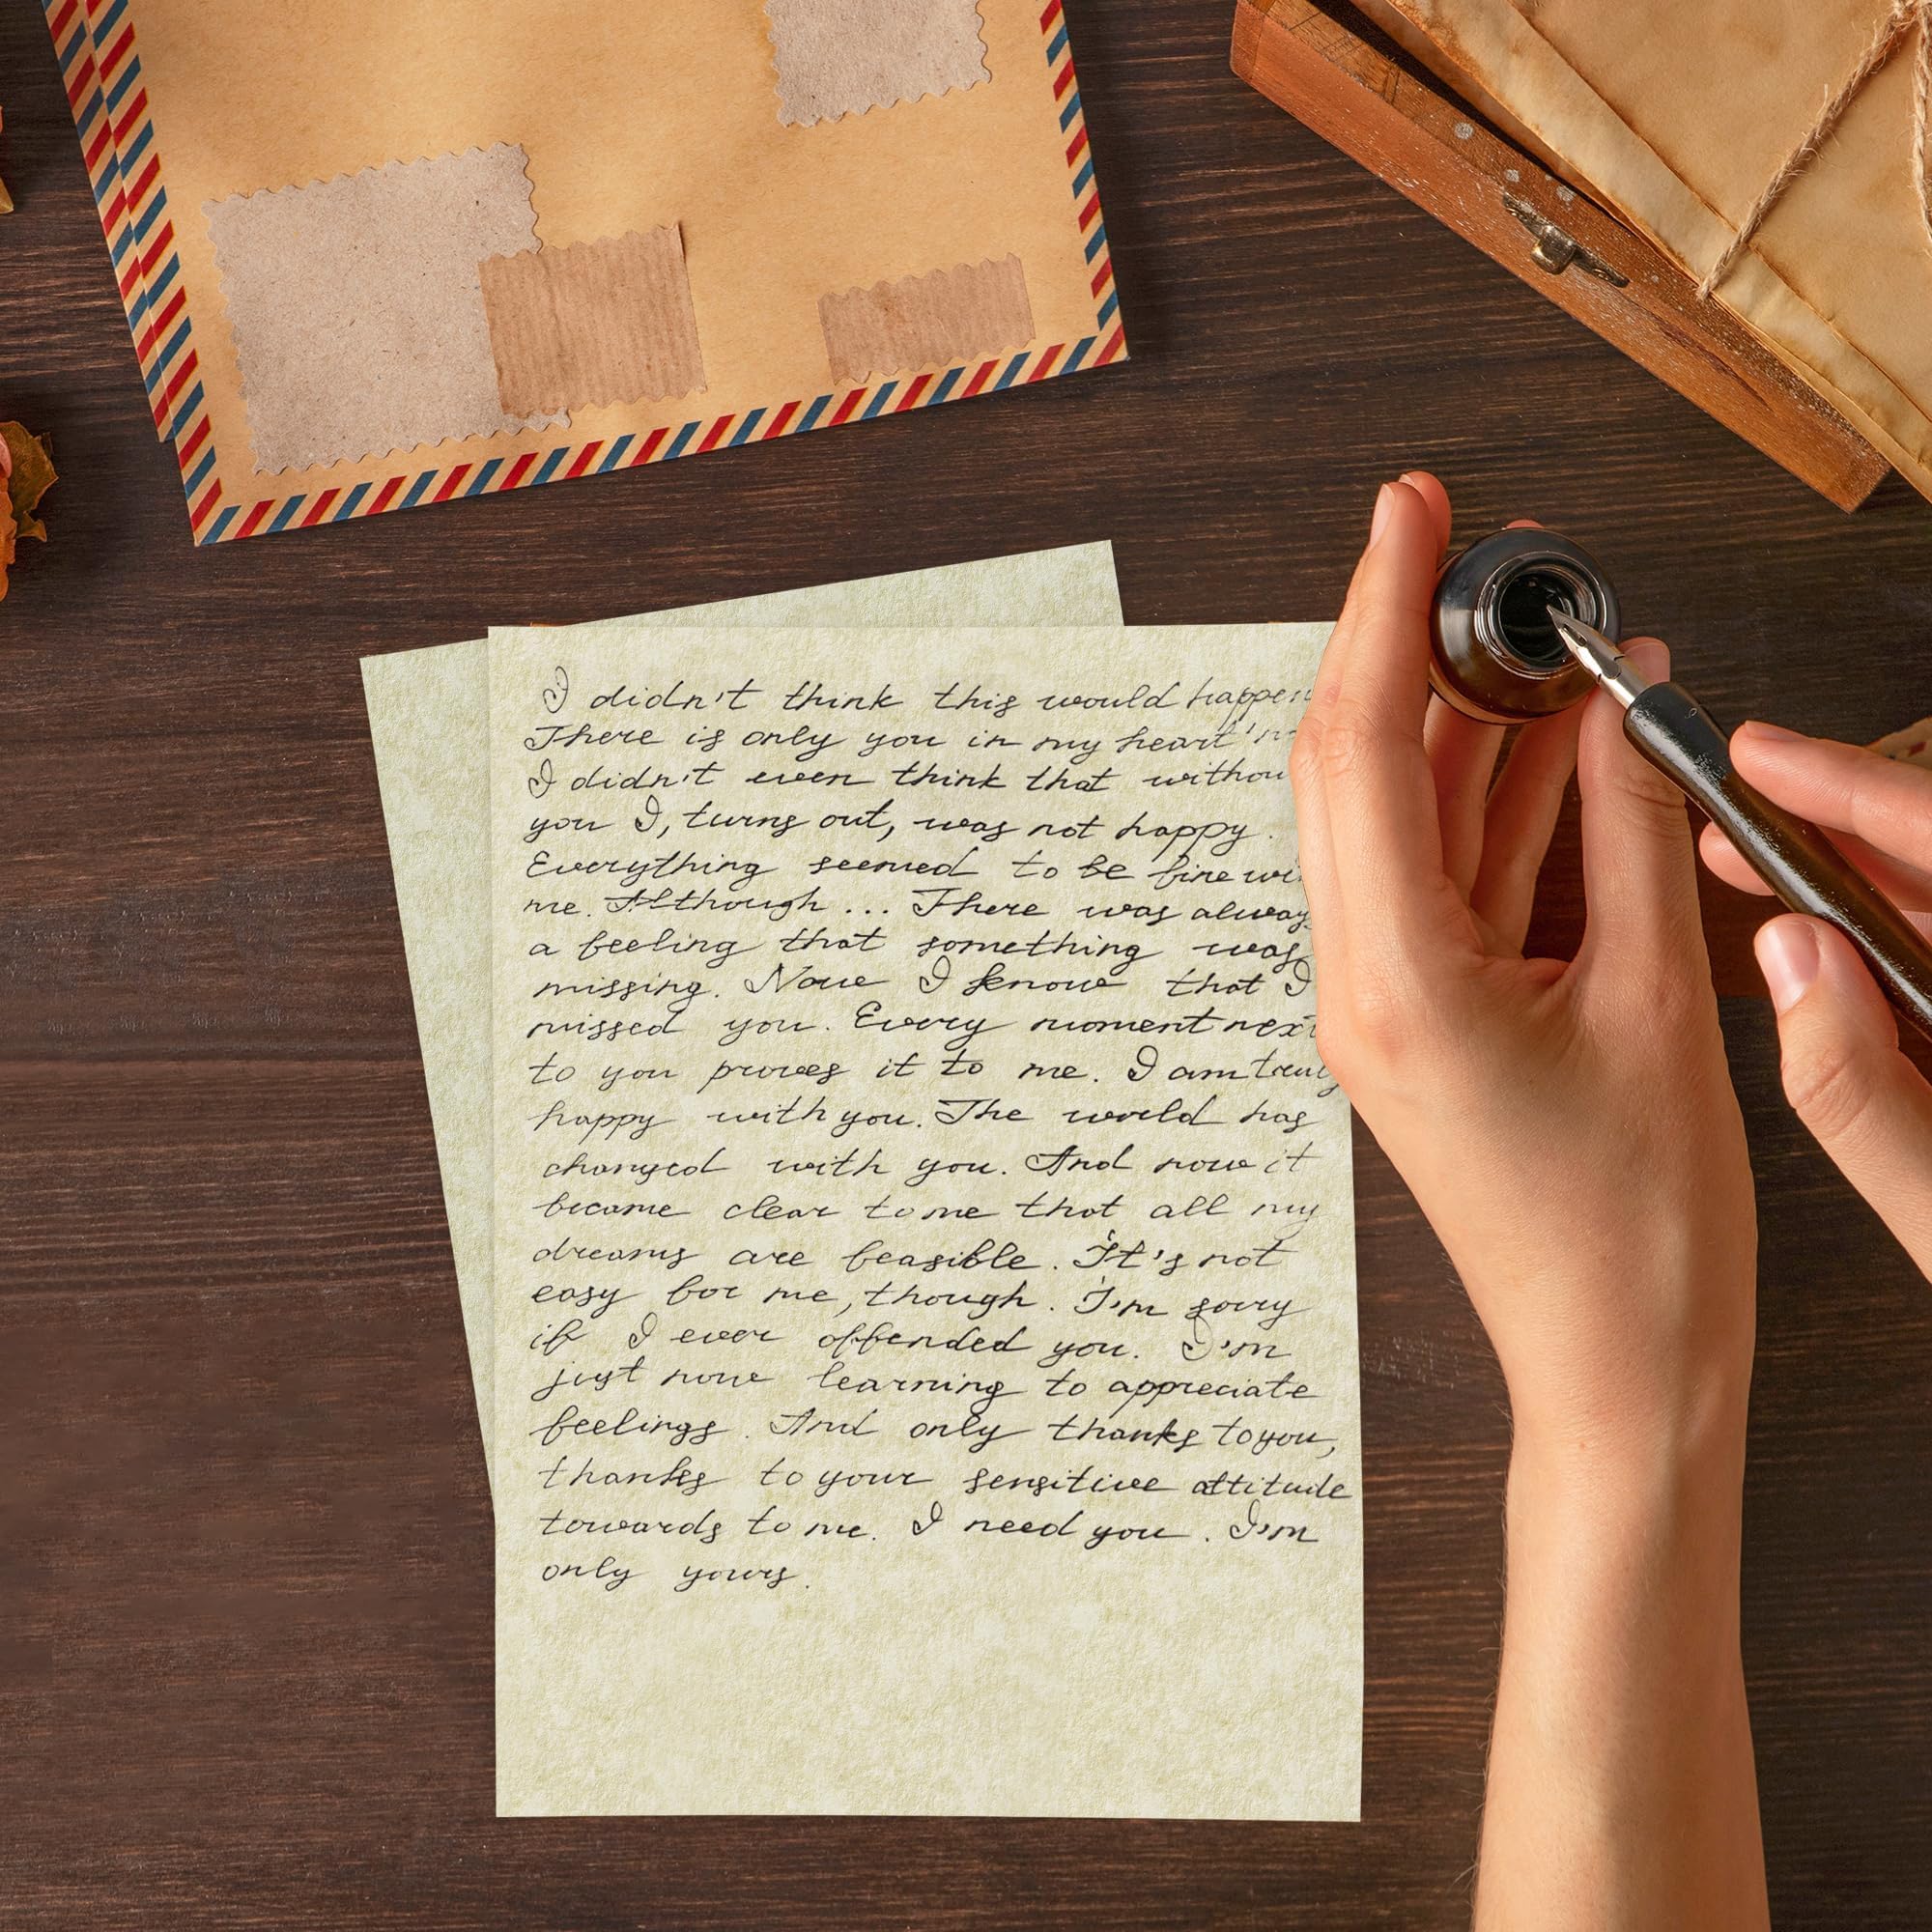 I didn't think this would happen
There is only you in my heart
I didn't even think that
you I, turns out, was not happy.
Everything seemed to be fine
me. Although... There was
a feeling that something was
missing. Now I know that I
missed you. Every moment next
to you proves it to me. I am truly
happy with you. The world has
changed with you. And now it
became clear to me that all my
dreams are feasible. It's not
easy for me, though. I'm sorry
if I ever offended you. I'm
just now learning to appreciate
feelings. And only thanks to you,
thanks to your sensitive attitude
towards to me. I need you. I'm
only yours.